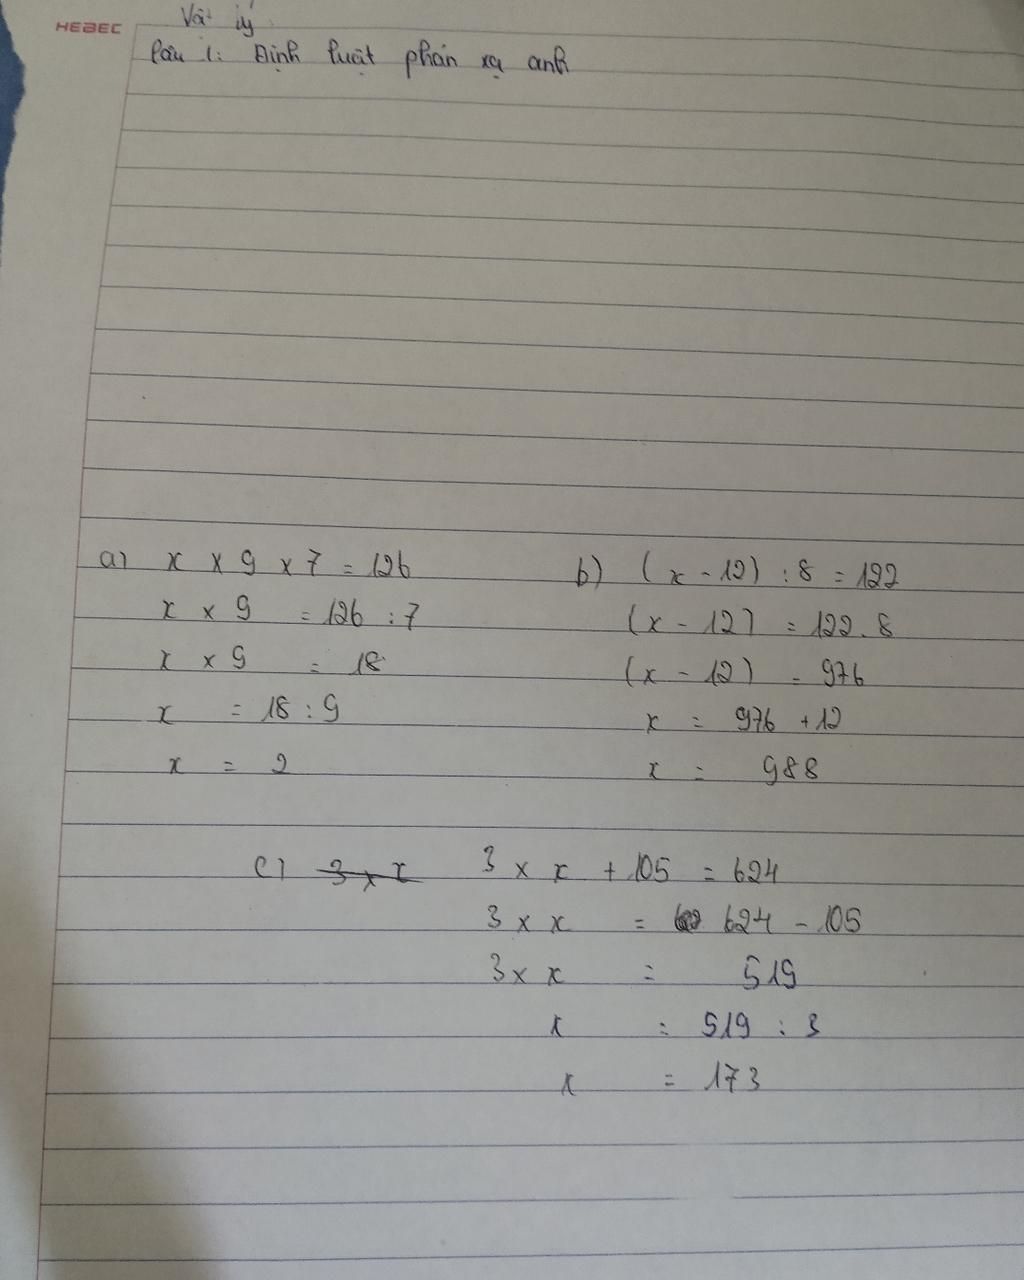 HEBEC
Vât lý
Câu 1: Định luật phản xạ anh
a) x x 9 x 7 = 126
x x 9 = 126 : 7
x x 9 = 18
x = 18 : 9
x = 2
b) (x - 12) : 8 = 122
(x - 12) = 122 . 8
(x - 12) = 976
x = 976 + 12
x = 988
c) 3 x x 3 x x + 105 = 624
3 x x = 624 - 105
3 x x = 519
x = 519 : 3
x = 173